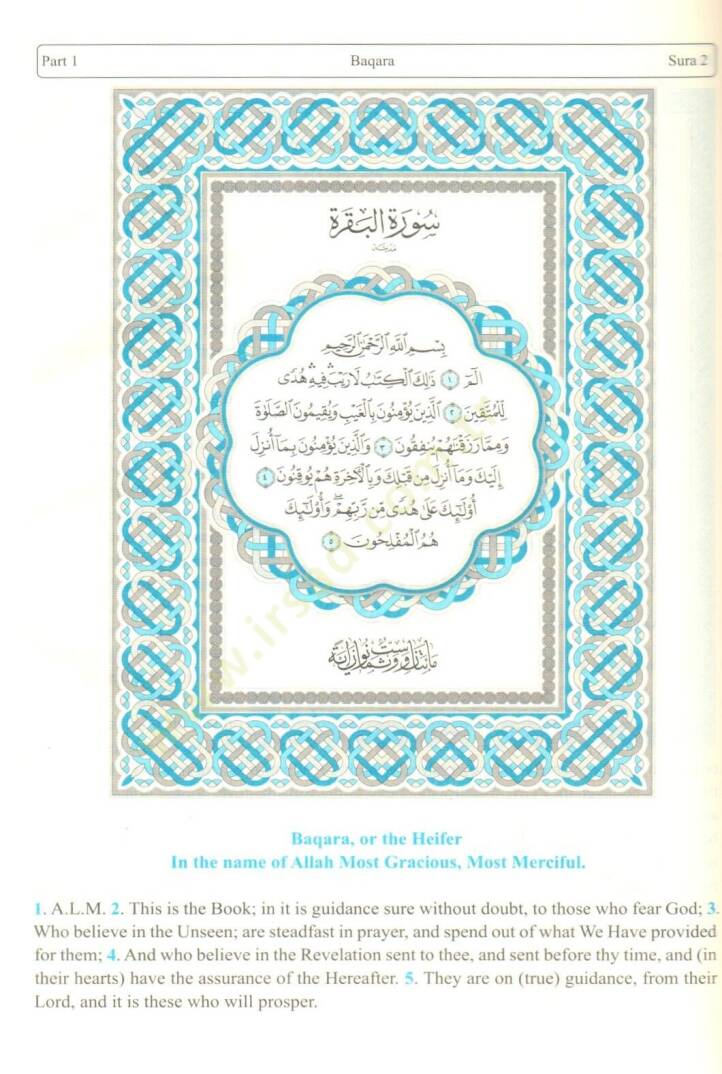 Part 1 Baqara Sura 2
سُورَةُ البَقَرَةِ
مدنية
بِسْمِ ٱللَّهِ ٱلرَّحْمَٰنِ ٱلرَّحِيمِ
الٓمٓ ١ ذَٰلِكَ ٱلْكِتَٰبُ لَا رَيْبَ ۛ فِيهِ ۛ هُدًى
لِّلْمُتَّقِينَ ٢ ٱلَّذِينَ يُؤْمِنُونَ بِٱلْغَيْبِ وَيُقِيمُونَ ٱلصَّلَوٰةَ
وَمِمَّا رَزَقْنَٰهُمْ يُنفِقُونَ ٣ وَٱلَّذِينَ يُؤْمِنُونَ بِمَآ أُنزِلَ
إِلَيْكَ وَمَآ أُنزِلَ مِن قَبْلِكَ وَبِٱلْءَاخِرَةِ هُمْ يُوقِنُونَ ٤
أُو۟لَٰٓئِكَ عَلَىٰ هُدًى مِّن رَّبِّهِمْ ۖ وَأُو۟لَٰٓئِكَ
هُمُ ٱلْمُفْلِحُونَ ٥
مائتان وست وثمانون آية
Baqara, or the Heifer
In the name of Allah Most Gracious, Most Merciful.
1. A.L.M. 2. This is the Book; in it is guidance sure without doubt, to those who fear God; 3.
Who believe in the Unseen; are steadfast in prayer, and spend out of what We Have provided
for them; 4. And who believe in the Revelation sent to thee, and sent before thy time, and (in
their hearts) have the assurance of the Hereafter. 5. They are on (true) guidance, from their
Lord, and it is these who will prosper.